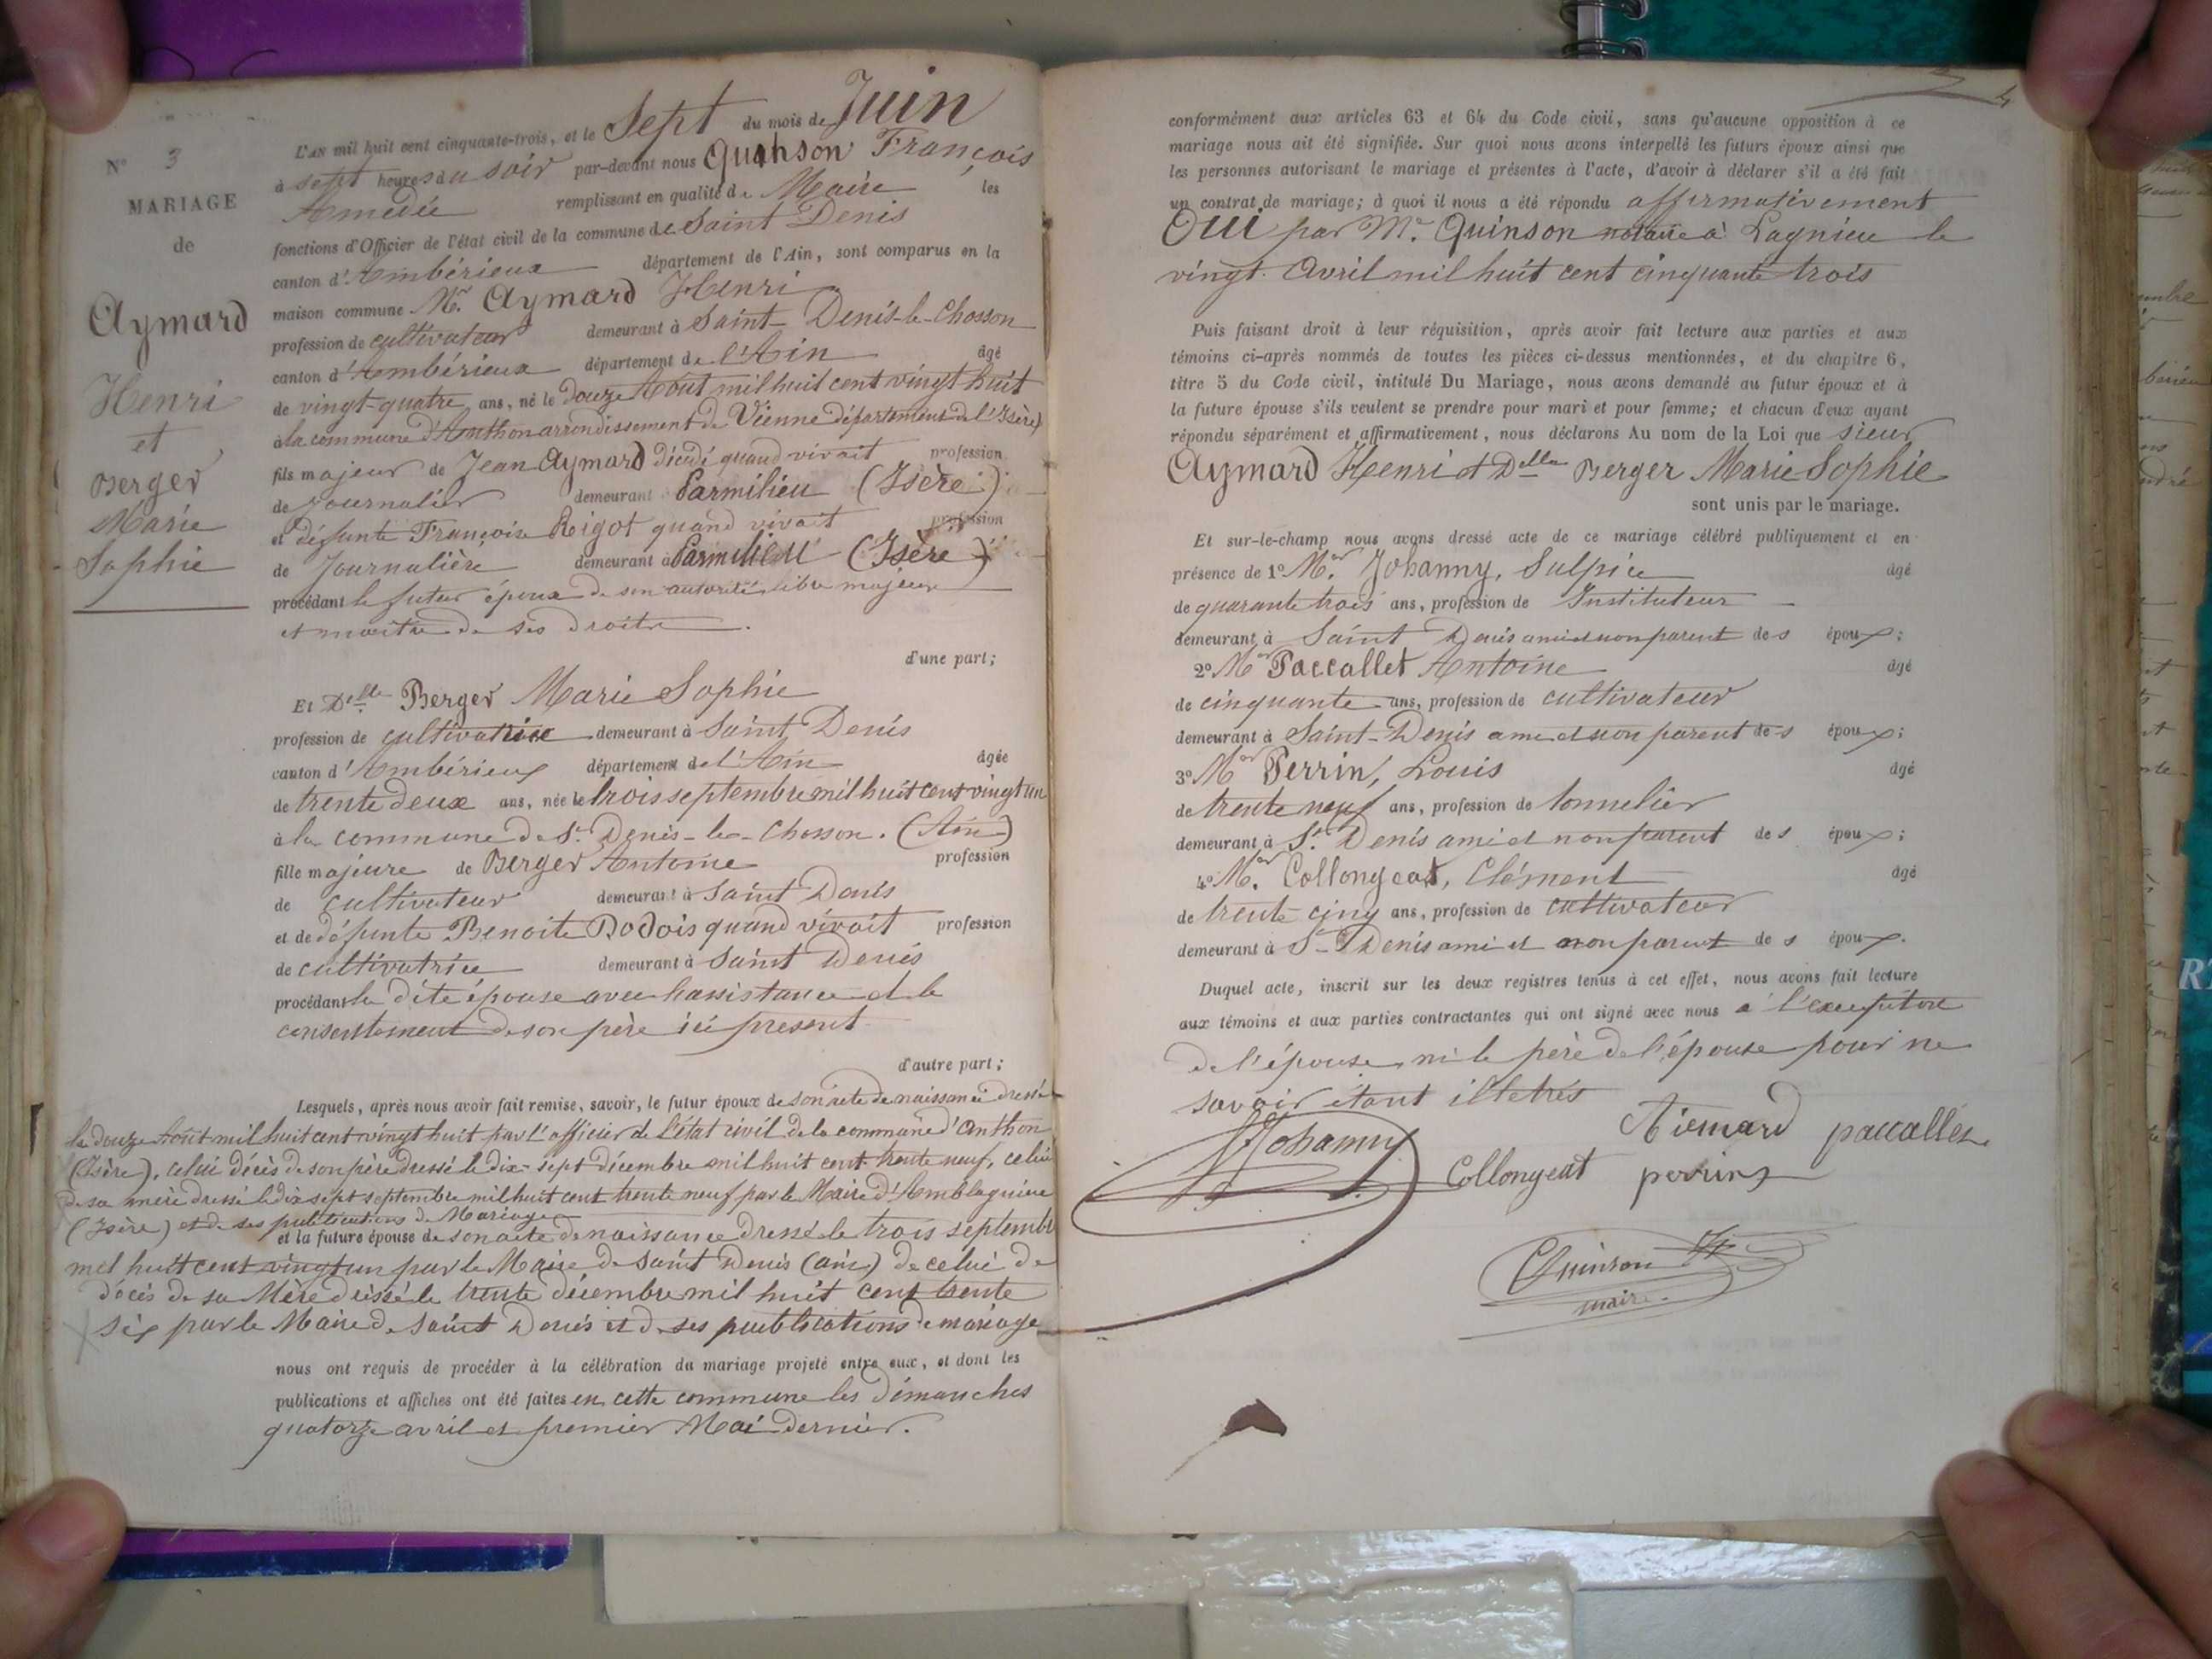 N° 3
MARIAGE
de
Aymard
Henri
et
Berger
Marie
Sophie
L'AN mil huit cent cinquante-trois, et le Sept du mois de Juin
à sept heures du soir par-devant nous Quinson François
Amédée remplissant en qualité de Maire les
fonctions d'Officier de l'état civil de la commune de Saint Denis
canton d'Ambérieux département de l'Ain, sont comparus en la
maison commune Mr. Aymard Henri
profession de cultivateur demeurant à Saint-Denis-le-Chosson
canton d'Ambérieux département de l'Ain âgé
de vingt-quatre ans, né le douze Août mil huit cent vingt huit
à la commune d'Anthon arrondissement de Vienne département de l'Isère)
fils majeur de Jean Aymard décédé quand vivait profession
de Journalier demeurant à Parmilieu (Isère)
et défunte Françoise Rigot quand vivait profession
de Journalière demeurant à Parmilieu (Isère)
procédant le futur époux de son autorité libre majeur
et maître de ses droits.
d'une part;
Et Delle Berger Marie Sophie
profession de cultivatrice demeurant à Saint Denis
canton d'Ambérieux département de l'Ain âgée
de trente deux ans, née le trois septembre mil huit cent vingt un
à la commune de St. Denis-le-Chosson. (Ain)
fille majeure de Berger Antoine profession
de cultivateur demeurant à Saint Denis
et de défunte Benoite Dodois quand vivait profession
de cultivatrice demeurant à Saint Denis
procédant la dite épouse avec l'assistance et le
consentement de son père ici présent
d'autre part;
Lesquels, après nous avoir fait remise, savoir, le futur époux de son acte de naissance dressé
le douze Août mil huit cent vingt huit par l'officier de l'état civil de la commune d'Anthon
(Isère), celui décès de son père dressé le dix-sept décembre mil huit cent trente neuf, celui
de sa mère dressé le dix sept septembre mil huit cent trente neuf par le Maire d'Amblagnieu
(Isère) et de ses publications de Mariage
et la future épouse de son acte de naissance dressé le trois septembre
mil huit cent vingt un par le Maire de Saint Denis (ain) de celui de
décès de sa Mère dressé le trente décembre mil huit cent trente
six par le Maire de Saint Denis et de ses publications de mariage
nous ont requis de procéder à la célébration du mariage projeté entre eux, et dont les
publications et affiches ont été faites en cette commune les dimanches
quatorze avril et premier Mai dernier.
4
conformément aux articles 63 et 64 du Code civil, sans qu'aucune opposition à ce
mariage nous ait été signifiée. Sur quoi nous avons interpellé les futurs époux ainsi que
les personnes autorisant le mariage et présentes à l'acte, d'avoir à déclarer s'il a été fait
un contrat de mariage; à quoi il nous a été répondu affirmativement
Oui par Me. Quinson notaire à Lagnieu le
vingt Avril mil huit cent cinquante trois
Puis faisant droit à leur réquisition, après avoir fait lecture aux parties et aux
témoins ci-après nommés de toutes les pièces ci-dessus mentionnées, et du chapitre 6,
titre 5 du Code civil, intitulé Du Mariage, nous avons demandé au futur époux et à
la future épouse s'ils veulent se prendre pour mari et pour femme; et chacun d'eux ayant
répondu séparément et affirmativement, nous déclarons Au nom de la Loi que sieur
Aymard Henri et Delle Berger Marie Sophie
sont unis par le mariage.
Et sur-le-champ nous avons dressé acte de ce mariage célébré publiquement et en
présence de 1° Mr. Johanny, Sulpice âgé
de quarante trois ans, profession de Instituteur
demeurant à Saint Denis ami et non parent des époux;
2° Mr Paccallet Antoine âgé
de cinquante ans, profession de cultivateur
demeurant à Saint-Denis ami et non parent des époux;
3° Mr Perrin, Louis âgé
de trente neuf ans, profession de tonnelier
demeurant à St. Denis ami et non parent des époux;
4° Mr. Collongeat, Clément âgé
de trente cinq ans, profession de cultivateur
demeurant à St Denis ami et non parent des époux.
Duquel acte, inscrit sur les deux registres tenus à cet effet, nous avons fait lecture
aux témoins et aux parties contractantes qui ont signé avec nous à l'exception
de l'épouse, ni le père de l'épouse pour ne
savoir étant illetrés
Aiemard paccallet
Johanny
Collongeat perrin
Quinson
maire.